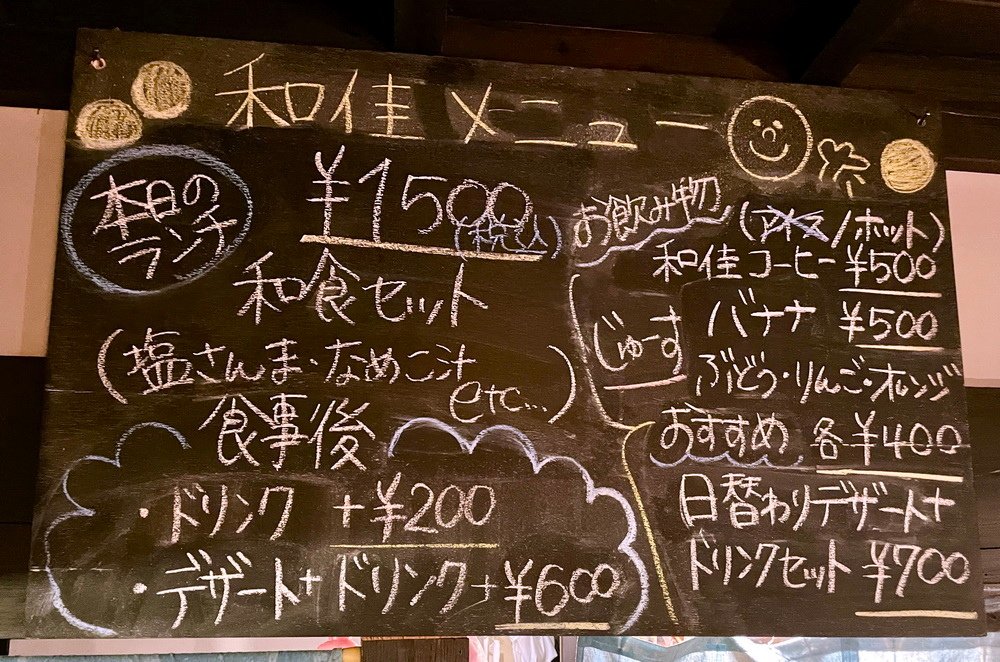 和佳メニュー
本日の
ランチ
¥1500
(税込)
和食セット
(塩さんま・なめこ汁
etc...)
食事後
・ドリンク +¥200
・デザート+ドリンク+¥600
お飲み物
(アイス/ホット)
和佳コーヒー ¥500
じゅーす
バナナ ¥500
ぶどう・りんご・オレンジ
各¥400
おすすめ
日替わりデザート+
ドリンクセット ¥700